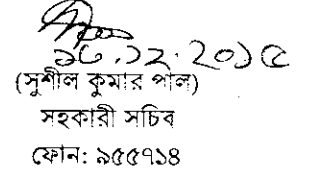 ১০.১২.২০১৫
(সুশীল কুমার পাল)
সহকারী সচিব
ফোন: ৯৫৫৭১৪